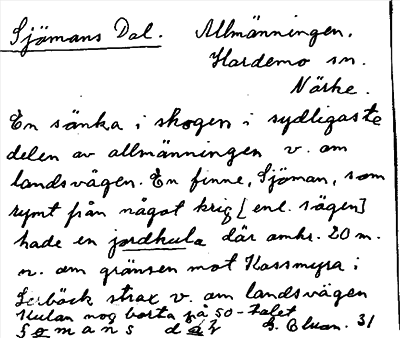 Sjömans Dal. Allmänningen.
Hardemo sn.
Närke.
En sänka i skogen i sydligaste
delen av allmänningen v. om
landsvägen. En finne, Sjöman, som
rymt från något krig [enl. sägen]
hade en jordkula där omkr. 20 m.
n. om gränsen mot Kassmyra i
Lerbäck strax v. om landsvägen
Kulan nog borta på 50-talet